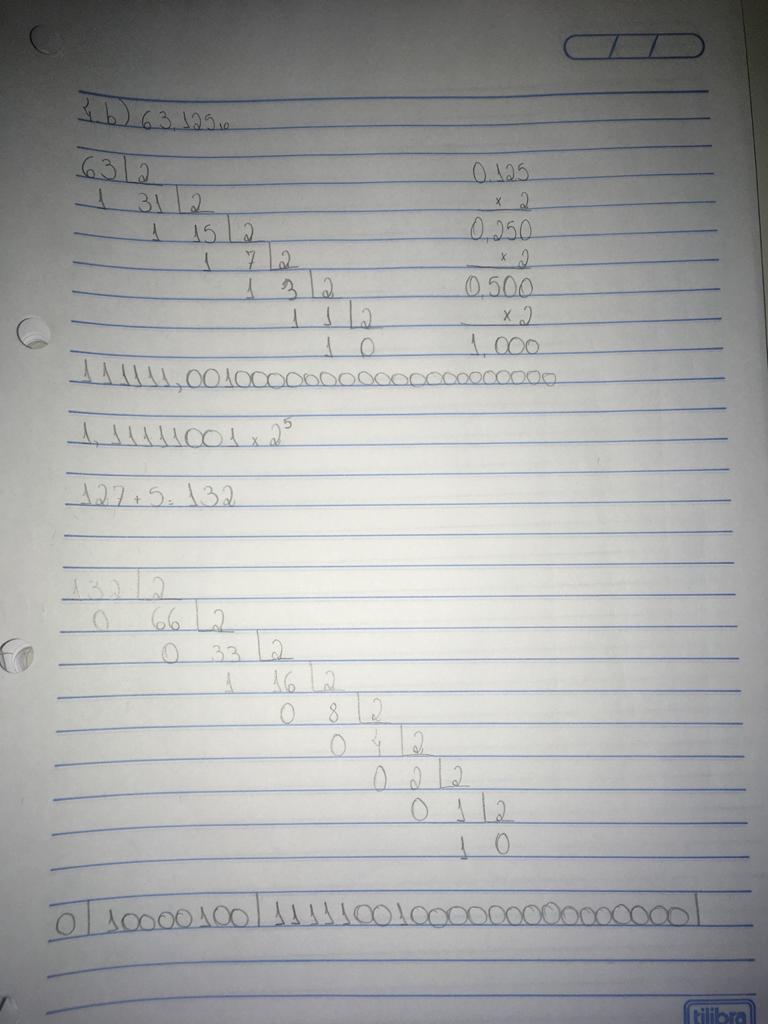 4 b) 63,125₁₀
63 | 2
1 31 | 2
1 15 | 2
1 7 | 2
1 3 | 2
1 1 | 2
1 0
0,125
x 2
0,250
x 2
0,500
x 2
1,000
111111,001000000000000000000000
1,11111001 x 2⁵
127 + 5 = 132
132 | 2
0 66 | 2
0 33 | 2
1 16 | 2
0 8 | 2
0 4 | 2
0 2 | 2
0 1 | 2
1 0
0 | 10000100 | 11111001000000000000000 |
tilibra